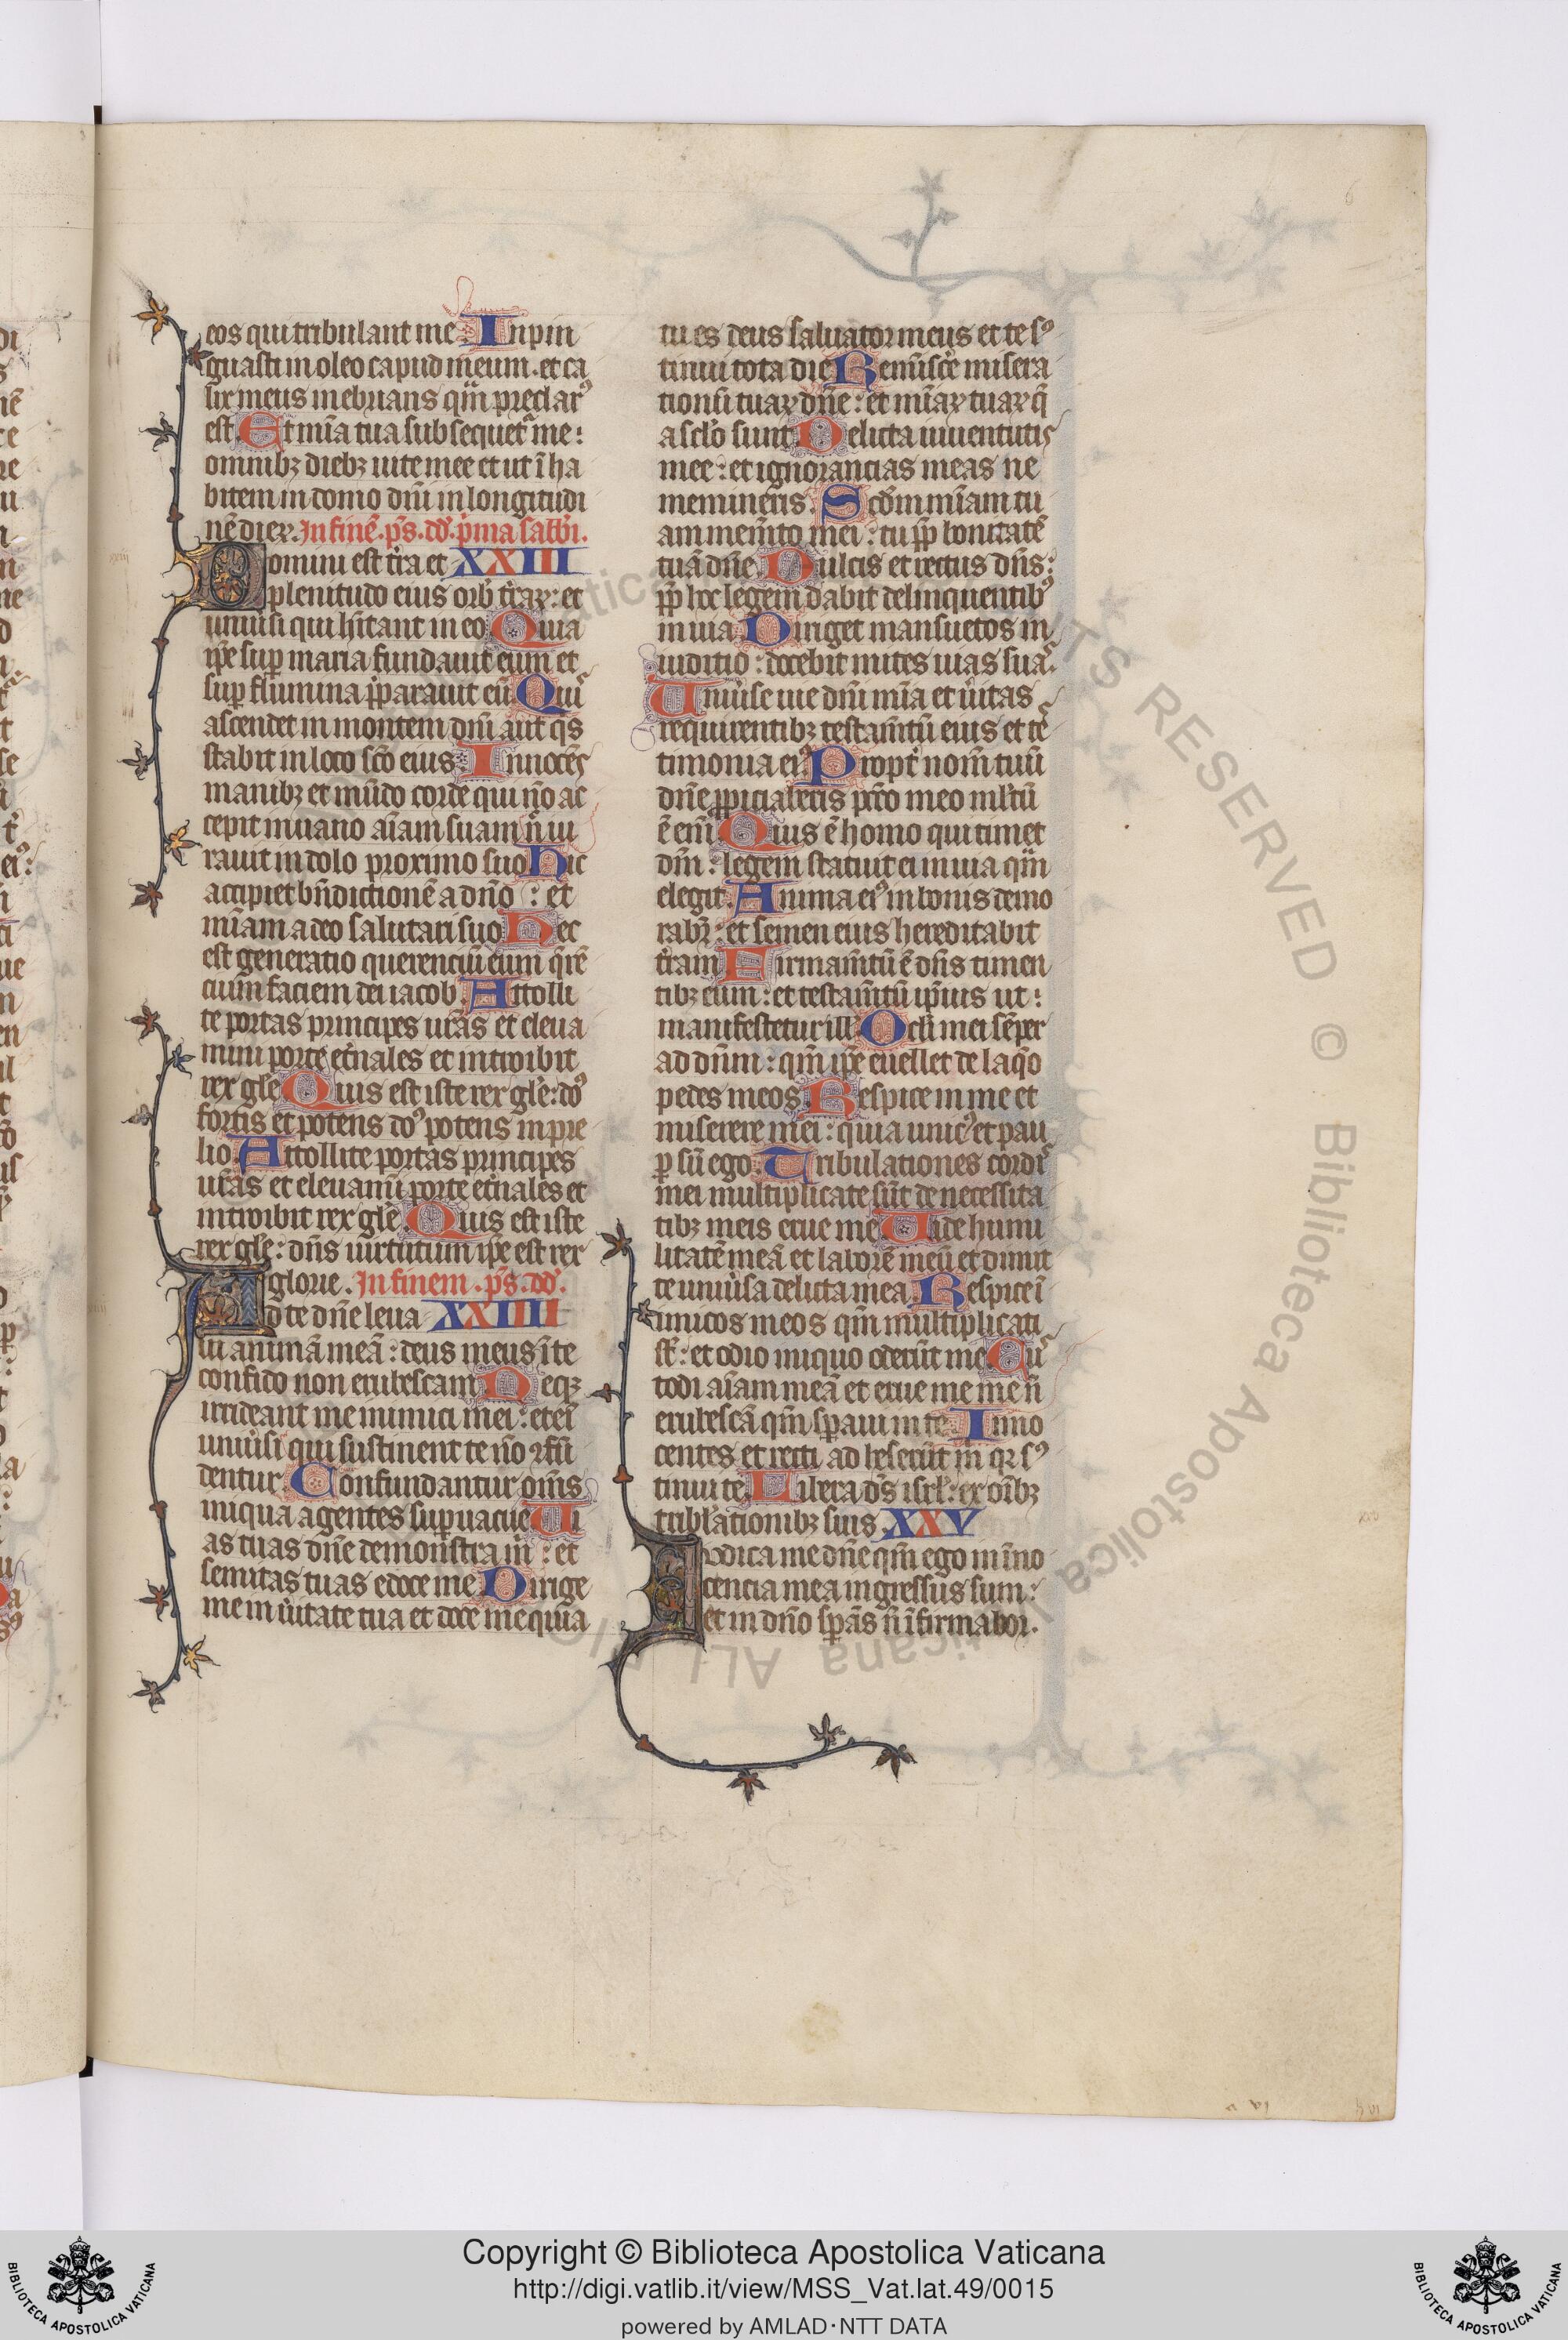 eos qui tribulant me Inpin
guasti in oleo capud meum . et ca
lix meus inebrians qm̄ preclarꝰ
est Et mīa tua subsequetr me :
omnibꝫ diebꝫ uite mee et ut ī ha
bitem in domo dnī in longitudi
nē dieꝝ . In finē . ps̄ . dd̄ . pͥma sabbi .
Domini est tr̄a et XXIII
plenitudo eius orbͭ tr̄aꝝ : et
uniuͥsi qui hītant in eo Quia
ipe suꝑ maria fundauit eum et
suꝑ flumina p̄parauit eū Quiͥ
ascendet in montem dnī aut qͥs
stabit in loco scō eius Innocēs
manibꝫ et mūdo corde qui nō ac
cepit in uano aīam suam n̄ iu
rauit in dolo proximo suo Hic
accipiet bn̄dictionē a dno : et
mīam a deo salutari suo Hec
est generatio querenciū eum qrē
cium faciem dei iacob Attolli
te portas principes urās et eleua
mini porte etr̄nales et introibit
rex glē Quis est iste rex glē : doꝰ
fortis et potens doꝰ potens in pre
lio Attollite portas principes
urās et eleuanū porte etr̄nales et
introibit rex glē Quis est iste
rex glē : dn̄s uirtutum ipe est rex
glorie . In finem . ps̄ . dd̄ .
Ad te dn̄e leua XXIIII
ui animā meā : deus meus ī te
confido non erubescam Neqꝫ
irrideant me inimici mei : eteī
uniuͥsi qui sustinent te nō ꝯfū
dentur Confundantur om̄s
iniqua agentes suꝑuacue Ui
as tuas dn̄e demonstra m̄ : et
semitas tuas edoce me Dirige
me in uͥitate tua et doce me quia
tu es deus saluator meus et te sꝰ
tinui tota die Reminiscē misera
tionū tuaꝝ dn̄e : et mīaꝝ tuaꝝ q̄
a scl̄o sunt Delicta iuuentutis
mee : et ignorancias meas ne
memineris . Scd̄m mīam tu
am mem̄to mei : tu ꝓꝑ bonitatē
tuā dn̄e Dulcis et rectus dn̄s :
ꝓꝑ hoc legem dabit delinquentibꝰ
in uia Diriget mansuetos in
iuditio : docebit mites uias suas
Uniuͥse uie dnī mīa et uͥitas
requirentibꝫ testam̄tū eius et tes
timonia eiꝰ Proptͥ nom̄ tuū
dn̄e ꝓpiciaberis pctō meo ml̄tū
ē enī Quis ē homo qui timet
dm̄ : legem statuit ei in uia qm̄
elegit Anima eiꝰ in bonis demo
rabr̄ : et semen eius hereditabit
tr̄am Firmam̄tū ē dn̄s timen
tibꝫ eum : et testam̄tū ip̄ius ut :
manifestetur ill̄ Ocl̄i mei sēper
ad dnm̄ : qm̄ ipe euellet de laqͦo
pedes meos Respice in me et
miserere mei : quia unicꝰ et pau
ꝑ sū ego Tribulationes cordis
mei multiplicate sūt de necessita
tibꝫ meis erue me Uide humi
litatē meā et laborē meū et dimit
te uniuͥsa delicta mea Respice ī
inicos meos qm̄ multiplicati
st̄ : et odio iniquo oderūt me Cus
todi aīam meā et erue me me n̄
erubescā qm̄ sꝑaui in te Inno
centes et recti adheserūt m̄ qꝛ sꝰ
tinui te Libera dꝰs isrl̄ : ex oībꝫ
tribl̄ationibꝫ suis XXV
Iudica me dn̄e qm̄ ego in ino
cencia mea ingressus sum :
et in dno sꝑās n̄ īfirmabor .
6
Copyright © Biblioteca Apostolica Vaticana
http://digi.vatlib.it/view/MSS_Vat.lat.49/0015
powered by AMLAD·NTT DATA
BIBLIOTECA APOSTOLICA VATICANA
BIBLIOTECA APOSTOLICA VATICANA